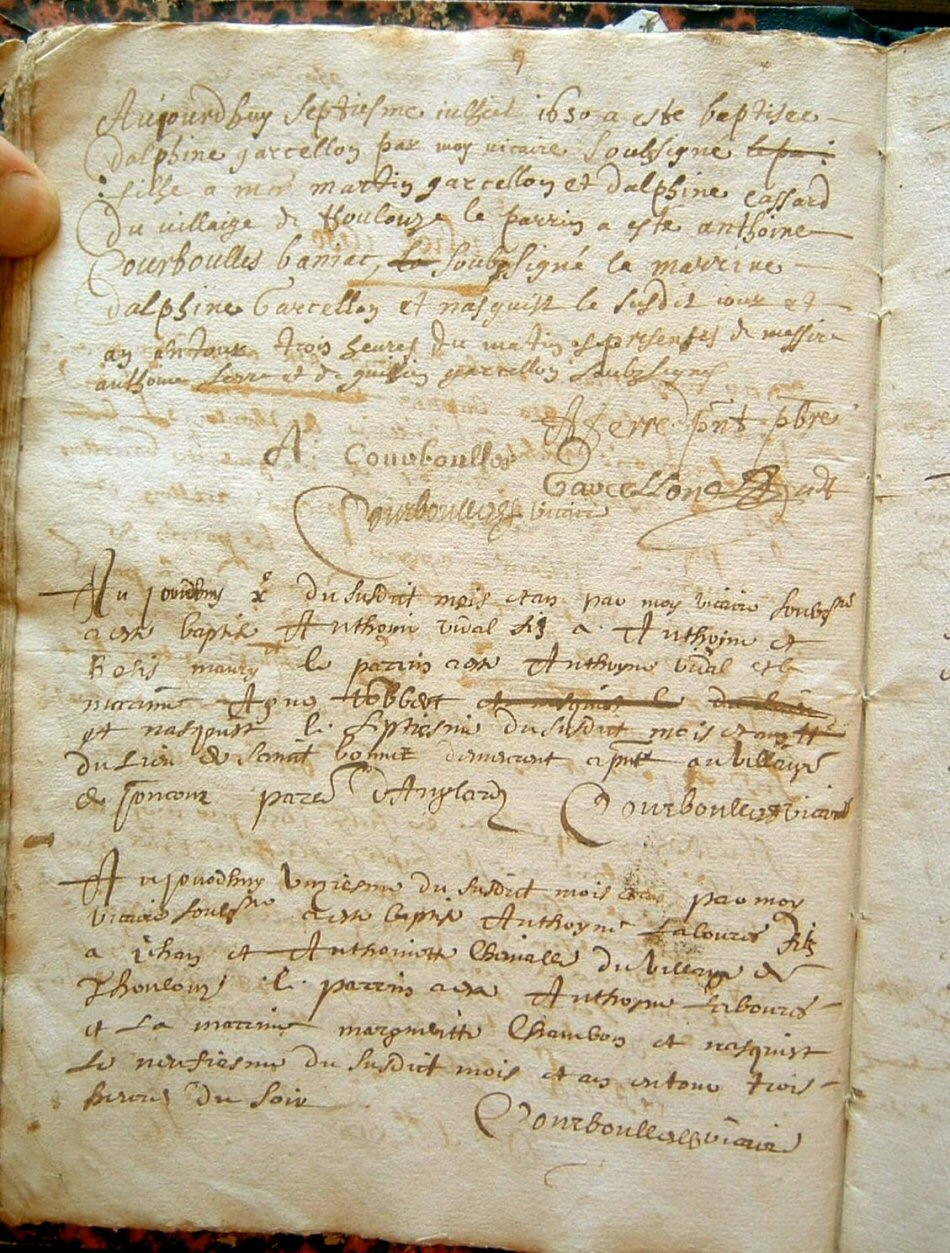 9
Aujourdhuy septiesme iuilhet 1650 a este baptisee
dalphine garcellon par moy vicaire soubsigne
fille a me martin garcellon et dalphine cassard
du villaige de thoulouze le parrin a este anthoine
Courboulles baniac, la soubsigné la marrine
dalphine Garcellon et nasquist le susdit iour et
an entour trois heures du matin es presentes de messire
anthoine serre et de guillin garcellon soubsignes
A Serre pnt pbre
A. Courboulles
Garcellon
Courboulles vicaire
Aujourdhuy xe du susdict mois et an par moy vicaire soubsne
a este baptise Anthoine vidal filz a Anthoine et
maury le parrin a este Anthoyne vidal et le
marrine Agne et nasquist le
et nasquist le septiesme du susdict mois et an
du Lieu de sainct bonnet demeurent a pnt au villaige
de par d'Anglardz Courboulles vicaire
Aujourdhuy unziesme du susdict mois et an par moy
vicaire soubsne a este baptise Anthoyne Labouris filz
a Jehan et Anthoinette du villaige de
Thoulouze le parrin a este Anthoyne Labouris
et La marrine margueritte Chambon et nasquist
Le neufiesme du susdict mois et an entour trois
heures du soir
Courboulles vicaire